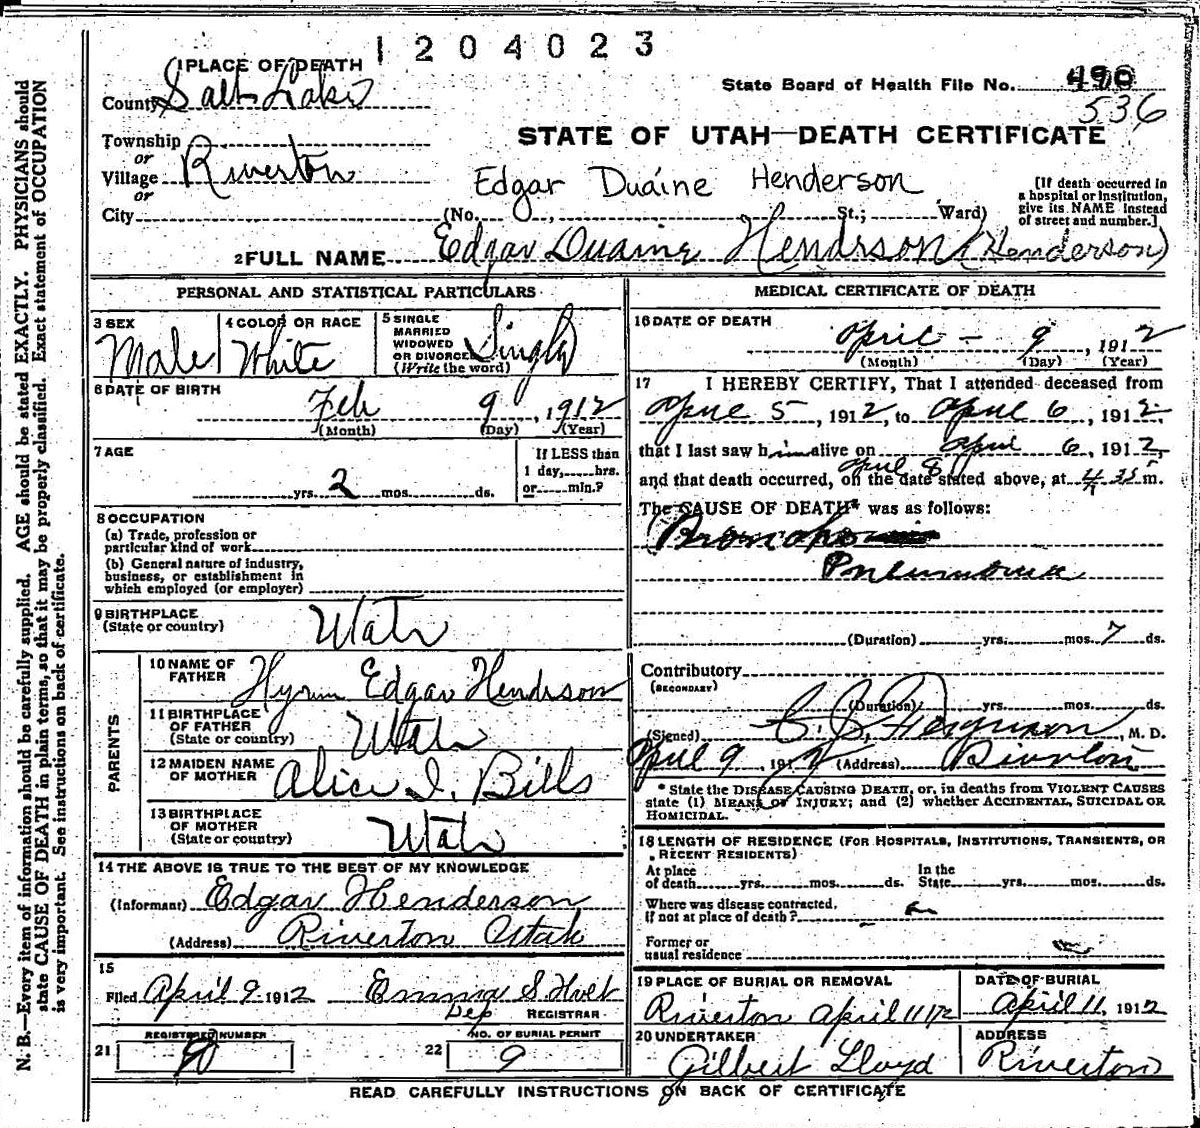 1204023
1 PLACE OF DEATH
County Salt Lake
State Board of Health File No. 490
536
Township
or
Village Riverton
or
City
STATE OF UTAH—DEATH CERTIFICATE
Edgar Duaine Henderson
(No. St.; Ward)
[If death occurred in
a hospital or institution,
give its NAME instead
of street and number.]
2 FULL NAME Edgar Duaine Hendrson (Henderson)
PERSONAL AND STATISTICAL PARTICULARS
3 SEX
Male
4 COLOR OR RACE
White
5 SINGLE
MARRIED
WIDOWED
OR DIVORCED
(Write the word)
Single
6 DATE OF BIRTH
Feb 9, 1912
(Month) (Day) (Year)
7 AGE
yrs. 2 mos. ds.
If LESS than
1 day, hrs.
or min.?
8 OCCUPATION
(a) Trade, profession or
particular kind of work
(b) General nature of industry,
business, or establishment in
which employed (or employer)
9 BIRTHPLACE
(State or country)
Utah
PARENTS
10 NAME OF
FATHER
Hyrum Edgar Hendrson
11 BIRTHPLACE
OF FATHER
(State or country)
Utah
12 MAIDEN NAME
OF MOTHER
Alice I. Bills
13 BIRTHPLACE
OF MOTHER
(State or country)
Utah
14 THE ABOVE IS TRUE TO THE BEST OF MY KNOWLEDGE
(Informant) Edgar Henderson
(Address) Riverton Utah
15
Filed April 9 1912 Emma S Holt
Dep REGISTRAR
21 REGISTERED NUMBER
22 NO. OF BURIAL PERMIT
9
MEDICAL CERTIFICATE OF DEATH
16 DATE OF DEATH
April - 9, 1912
(Month) (Day) (Year)
17 I HEREBY CERTIFY, That I attended deceased from
April 5, 1912, to April 6, 1912
that I last saw him alive on April 6, 1912,
April 8
and that death occurred, on the date stated above, at m.
The CAUSE OF DEATH* was as follows:
Broncho
Pneumonia
(Duration) yrs. mos. 7 ds.
Contributory
(SECONDARY)
(Duration) yrs. mos. ds.
(Signed) Ferguson, M. D.
April 9, 1912 (Address) Riverton
* State the DISEASE CAUSING DEATH, or, in deaths from VIOLENT CAUSES
state (1) MEANS OF INJURY; and (2) whether ACCIDENTAL, SUICIDAL OR
HOMICIDAL.
18 LENGTH OF RESIDENCE (FOR HOSPITALS, INSTITUTIONS, TRANSIENTS, OR
RECENT RESIDENTS)
At place
of death yrs. mos. ds.
In the
State yrs. mos. ds.
Where was disease contracted,
If not at place of death?
Former or
usual residence
19 PLACE OF BURIAL OR REMOVAL
Riverton April 11 12
DATE OF BURIAL
April 11, 1912
20 UNDERTAKER
Gilbert Lloyd
ADDRESS
Riverton
READ CAREFULLY INSTRUCTIONS ON BACK OF CERTIFICATE
N. B.—Every item of information should be carefully supplied. AGE should be stated EXACTLY. PHYSICIANS should
state CAUSE OF DEATH in plain terms, so that it may be properly classified. Exact statement of OCCUPATION
is very important. See instructions on back of certificate.